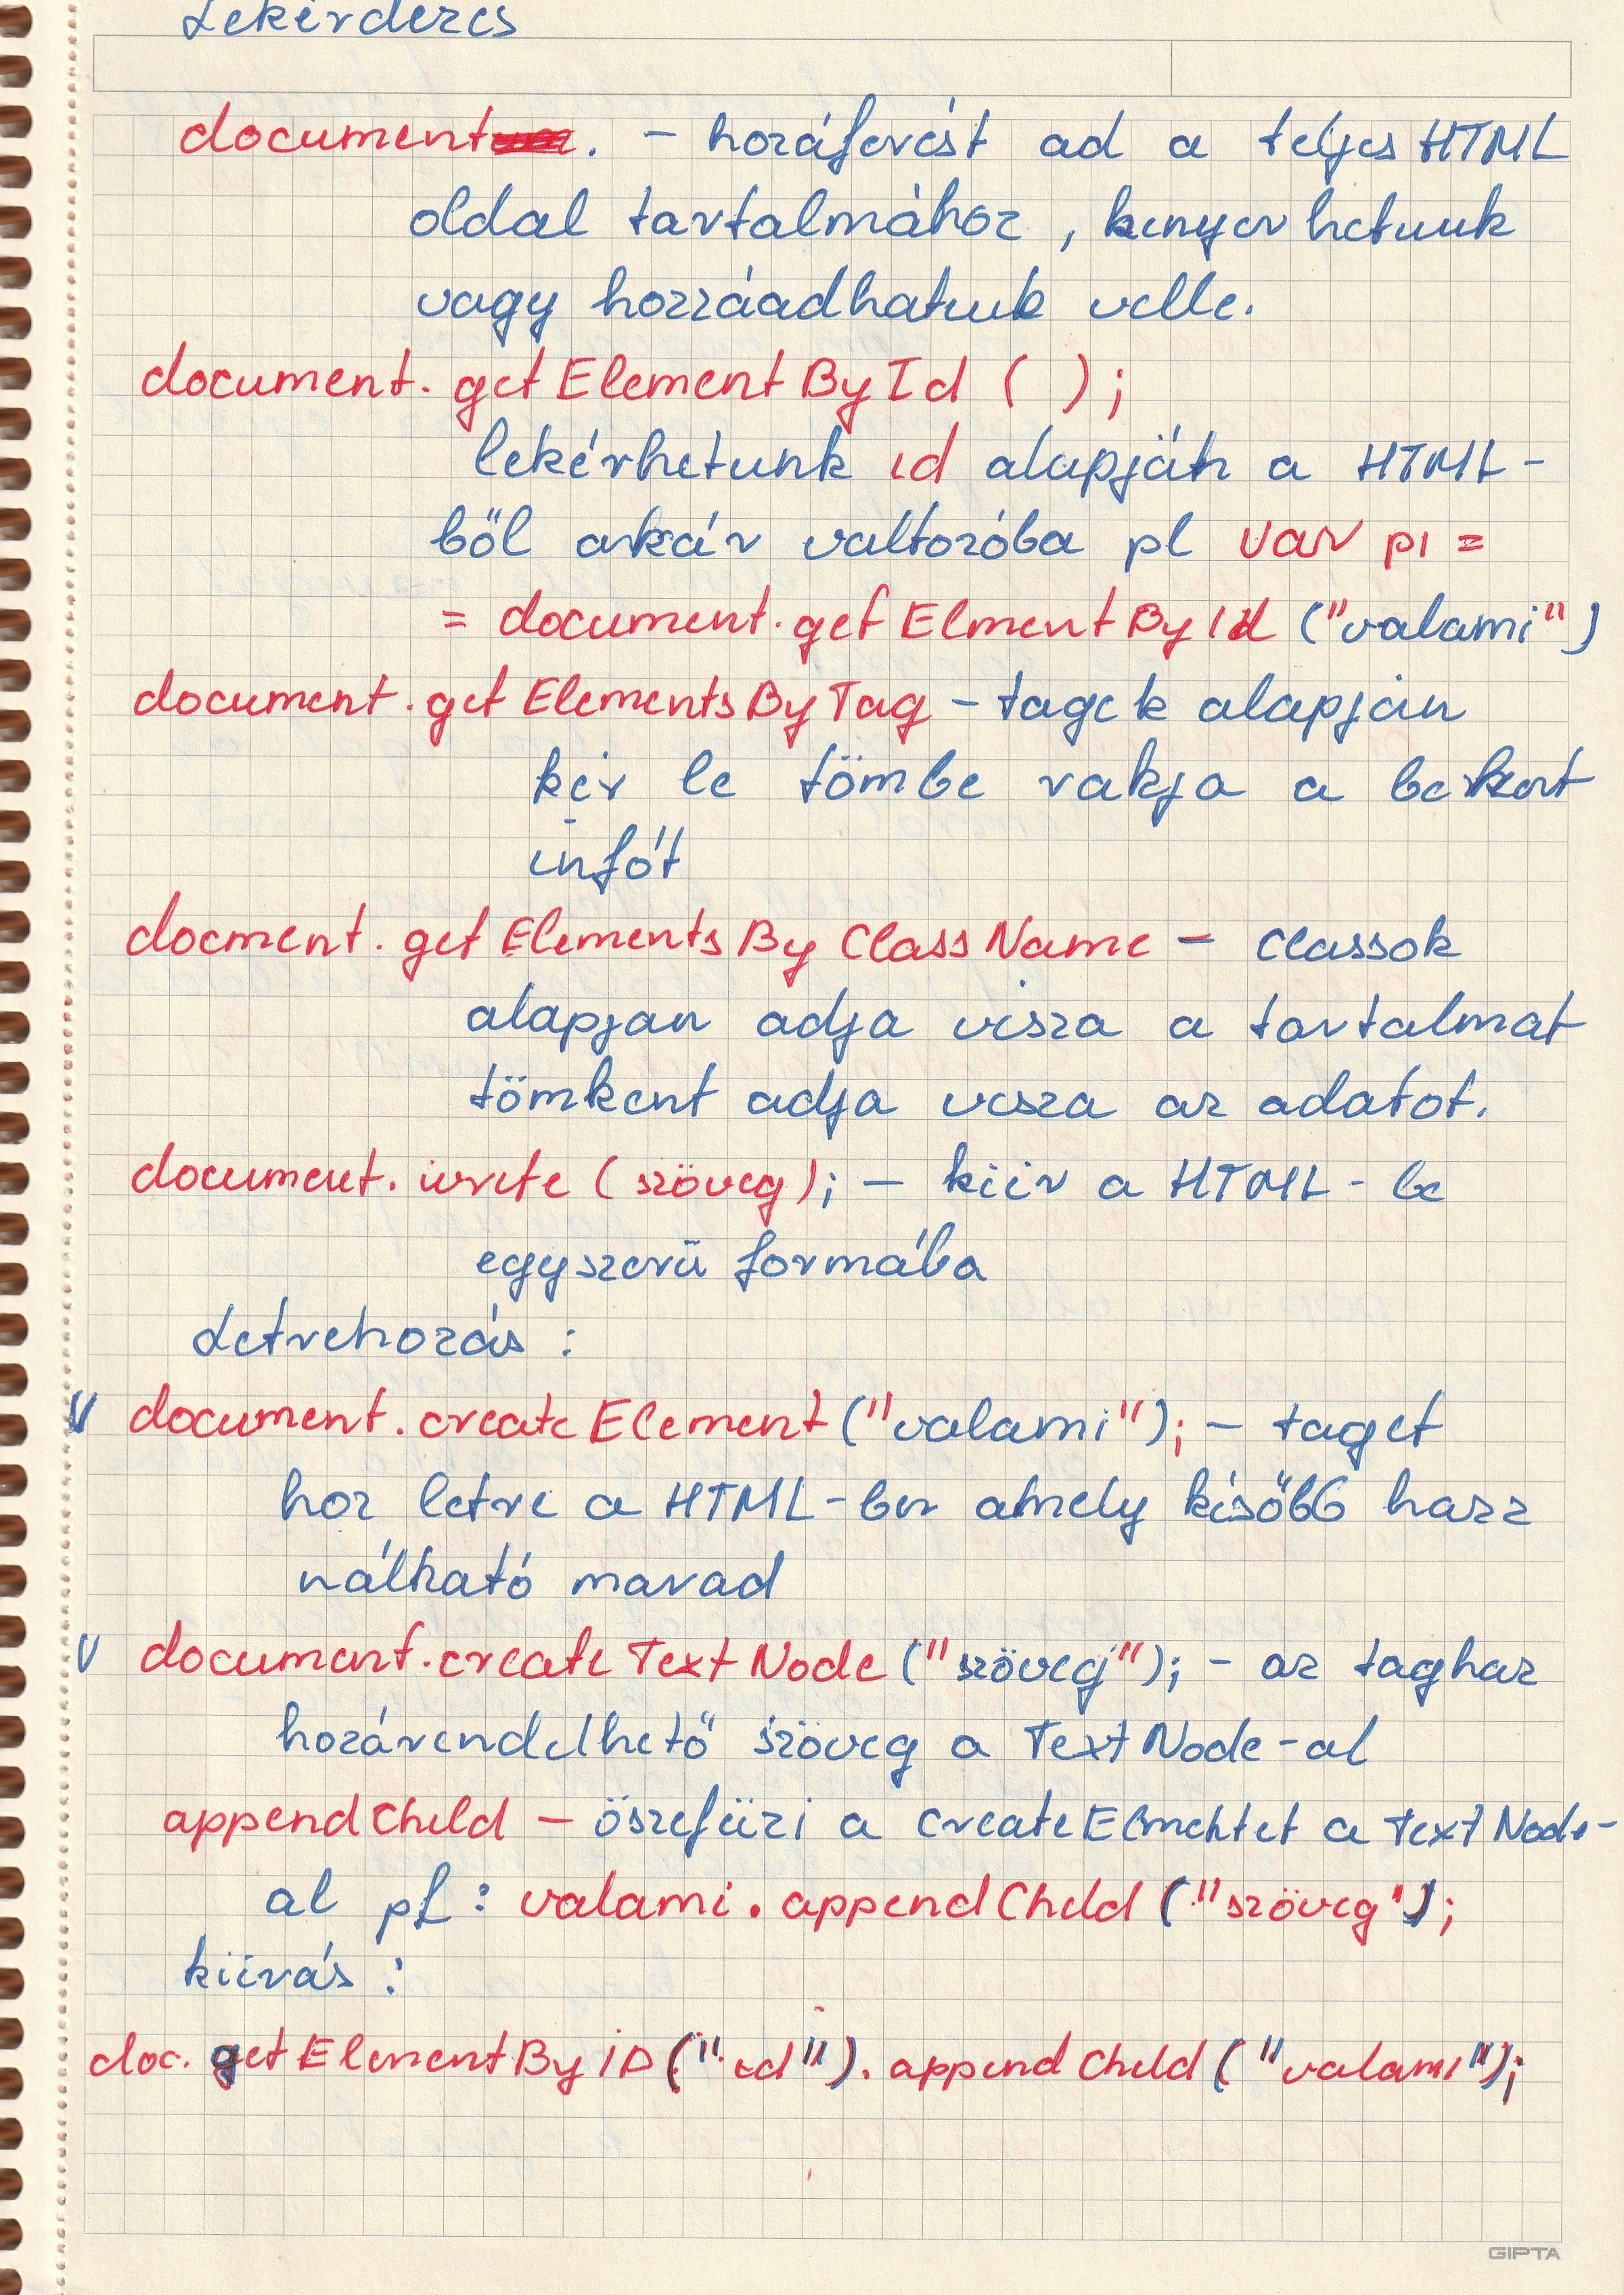 Lekérdezés
document. - hozáférést ad a teljes HTML
oldal tartalmához, kinyerhetunk
vagy hozzáadhatuk velle.
document.getElementById ( );
lekérhetunk id alapján a HTML-
ből akár valtozóba pl var p1 =
= document.getElmentById ("valami")
document.getElementsByTag - tagek alapján
kér le tömbe rakja a bekért
infót
docment.getElementsByClassName - classok
alapjan adja visza a tartalmat
tömkent adja visza az adatot.
document.write (szöveg); - kiir a HTML-be
egyszerü formába
Letrehozás :
V document.createElement ("valami"); - taget
hoz letre a HTML-ben amely később hasz
nálható marad
V document.createTextNode ("szöveg"); - az taghaz
hozárendelhető szöveg a TextNode-al
appendChild - öszefüzi a createElmentet a TextNode-
al pl : valami.appendChild ("szöveg");
kiirás :
doc.getElementByID ("id").appendChild ("valami");
GIPTA